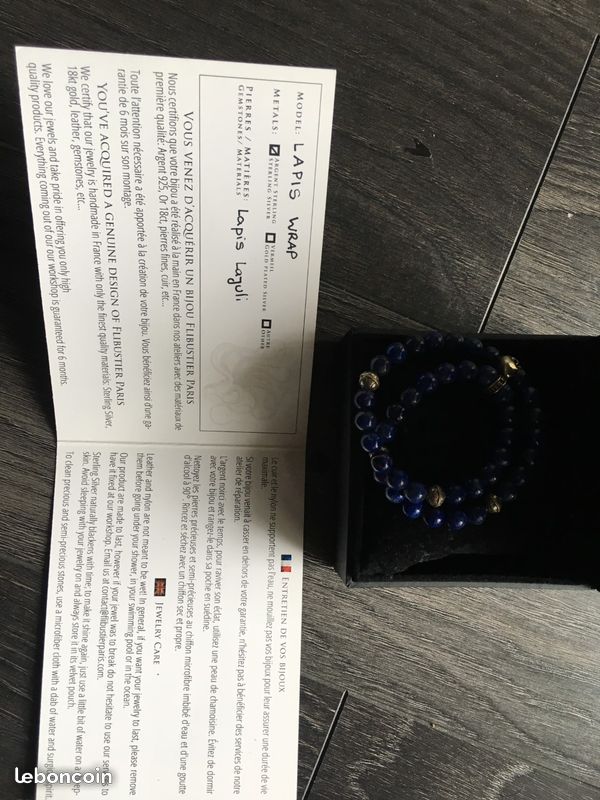 MODEL: LAPIS WRAP
METALS: ARGENT STERLING VERMEIL AUTRE
STERLING SILVER GOLD PLATED SILVER OTHER
PIERRES / MATIÈRES:
GEMSTONES / MATERIALS Lapis Lazuli
VOUS VENEZ D'ACQUÉRIR UN BIJOU FLIBUSTIER PARIS
Nous certifions que votre bijou a été réalisé à la main en France dans nos ateliers avec des matériaux de
première qualité: Argent 925, Or 18ct, pierres fines, cuir, etc...
Toute l'attention nécessaire a été apportée à la création de votre bijou. Vous bénéficiez ainsi d'une ga-
rantie de 6 mois sur son montage.
YOU'VE ACQUIRED A GENUINE DESIGN OF FLIBUSTIER PARIS
We certify that our jewelry is handmade in France with only the finest quality materials: Sterling Silver,
18kt gold, leather, gemstones, etc...
We love our jewels and take pride in offering you only high
quality products. Everything coming out of our workshop is guaranteed for 6 months.
ENTRETIEN DE VOS BIJOUX
Le cuir et le nylon ne supportent pas l'eau, ne mouillez pas vos bijoux pour leur assurer une durée de vie
maximale.
Si votre bijou venait à casser en dehors de votre garantie, n'hésitez pas à bénéficier des services de notre
atelier de réparation.
L'argent noircit avec le temps, pour raviver son éclat, utilisez une peau de chamoisine. Éviter de dormir
avec votre bijou et rangez-le dans sa poche en suédine.
Nettoyez les pierres précieuses et semi-précieuses au chiffon microfibre imbibé d'eau et d'une goutte
d'alcool à 90°. Rincez et séchez avec un chiffon sec et propre.
JEWELRY CARE
Leather and nylon are not meant to be wet! In general, if you want your jewelry to last, please remove
them before going under your shower, in your swimming pool or in the ocean.
Our product are made to last, however if your jewel was to break do not hesitate to use our services to
have it fixed at our workshop. Email us at contact@flibustierparis.com.
Sterling Silver naturally blackens with time; to make it shine again, just use a little bit of water on a
skin. Avoid sleeping with your jewelry on and always store it in its velvet pouch.
To clean precious and semi-precious stones, use a microfiber cloth with a dab of water and surgical spirit.
leboncoin